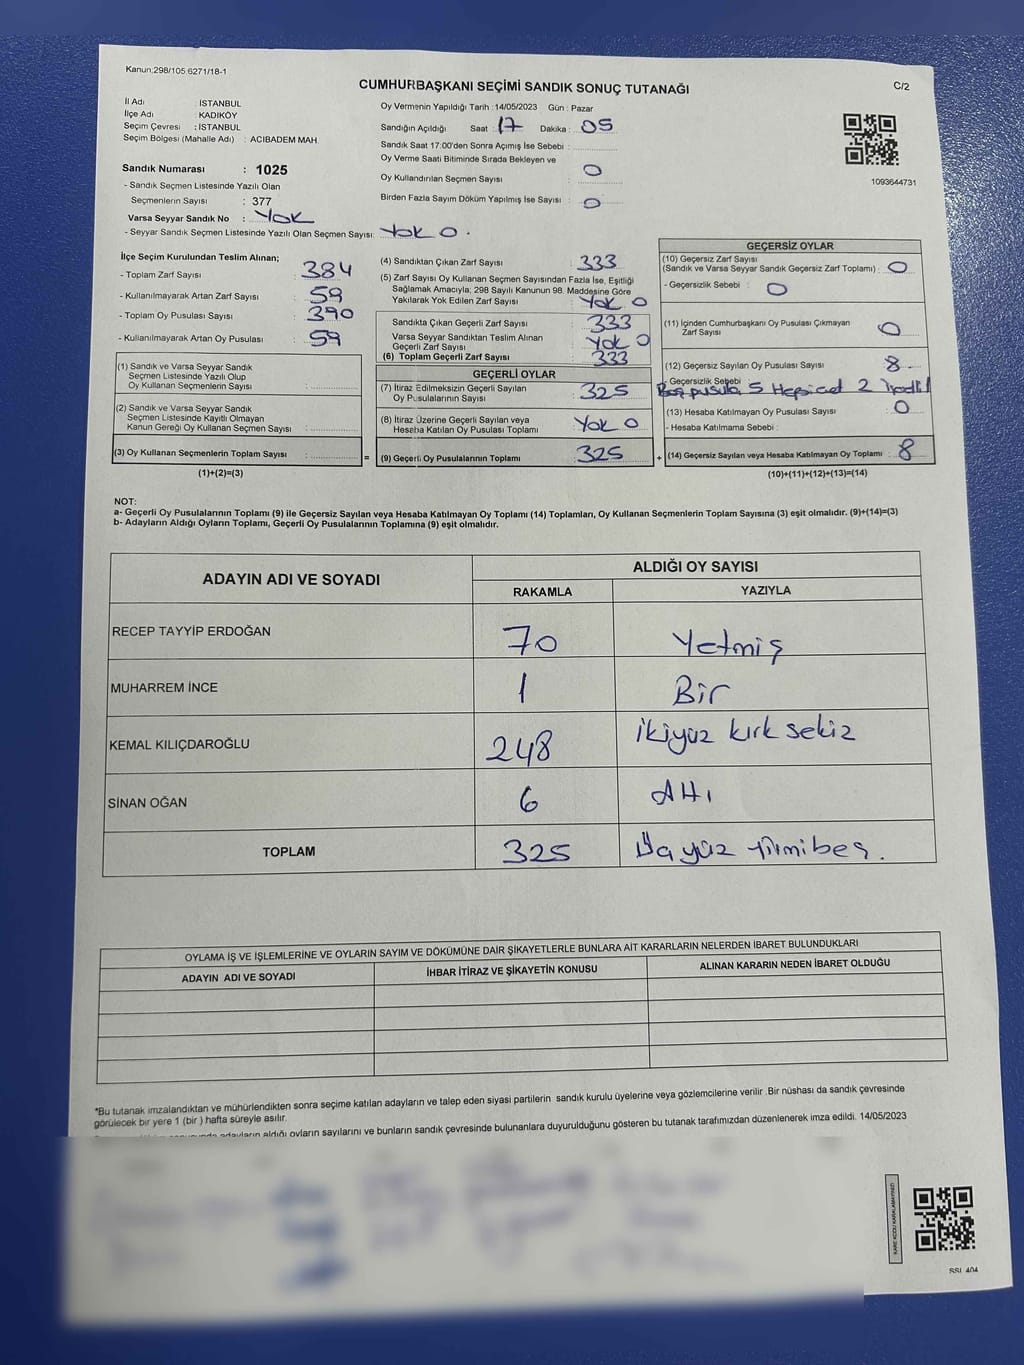 Kanun:298/105:6271/18-1
CUMHURBAŞKANI SEÇİMİ SANDIK SONUÇ TUTANAĞI
C/2
İl Adı : İSTANBUL
İlçe Adı : KADIKÖY
Seçim Çevresi : İSTANBUL
Seçim Bölgesi (Mahalle Adı) : ACIBADEM MAH.
Sandık Numarası : 1025
- Sandık Seçmen Listesinde Yazılı Olan
Seçmenlerin Sayısı : 377
Varsa Seyyar Sandık No : Yok
- Seyyar Sandık Seçmen Listesinde Yazılı Olan Seçmen Sayısı: Yok 0.
Oy Vermenin Yapıldığı Tarih :14/05/2023 Gün : Pazar
Sandığın Açıldığı Saat : 17 Dakika : 05
Sandık Saat 17:00'den Sonra Açımış İse Sebebi :
Oy Verme Saati Bitiminde Sırada Bekleyen ve
Oy Kullandırılan Seçmen Sayısı : 0
Birden Fazla Sayım Döküm Yapılmış İse Sayısı : 0
1093644731
İlçe Seçim Kurulundan Teslim Alınan;
- Toplam Zarf Sayısı : 384
- Kullanılmayarak Artan Zarf Sayısı : 59
- Toplam Oy Pusulası Sayısı : 390
- Kullanılmayarak Artan Oy Pusulası : 59
(1) Sandık ve Varsa Seyyar Sandık
Seçmen Listesinde Yazılı Olup
Oy Kullanan Seçmenlerin Sayısı :
(2) Sandık ve Varsa Seyyar Sandık
Seçmen Listesinde Kayıtlı Olmayan
Kanun Gereği Oy Kullanan Seçmen Sayısı :
(3) Oy Kullanan Seçmenlerin Toplam Sayısı :
(1)+(2)=(3)
(4) Sandıktan Çıkan Zarf Sayısı : 333
(5) Zarf Sayısı Oy Kullanan Seçmen Sayısından Fazla İse, Eşitliği
Sağlamak Amacıyla; 298 Sayılı Kanunun 98. Maddesine Göre
Yakılarak Yok Edilen Zarf Sayısı : Yok 0
Sandıkta Çıkan Geçerli Zarf Sayısı : 333
Varsa Seyyar Sandıktan Teslim Alınan
Geçerli Zarf Sayısı : Yok 0
(6) Toplam Geçerli Zarf Sayısı : 333
GEÇERLİ OYLAR
(7) İtiraz Edilmeksizin Geçerli Sayılan
Oy Pusulalarının Sayısı : 325
(8) İtiraz Üzerine Geçerli Sayılan veya
Heseba Katılan Oy Pusulası Toplamı : Yok 0
= (9) Geçerli Oy Pusulalarının Toplamı : 325
GEÇERSİZ OYLAR
(10) Geçersiz Zarf Sayısı
(Sandık ve Varsa Seyyar Sandık Geçersiz Zarf Toplamı) : 0
- Geçersizlik Sebebi : 0
(11) İçinden Cumhurbaşkanı Oy Pusulası Çıkmayan
Zarf Sayısı : 0
(12) Geçersiz Sayılan Oy Pusulası Sayısı : 8.
- Geçersizlik Sebebi
Boş pusula 5 2
(13) Hesaba Katılmayan Oy Pusulası Sayısı : 0
- Hesaba Katılmama Sebebi :
+ (14) Geçersiz Sayılan veya Hesaba Katılmayan Oy Toplamı : 8
(10)+(11)+(12)+(13)=(14)
NOT:
a- Geçerli Oy Pusulalarının Toplamı (9) ile Geçersiz Sayılan veya Hesaba Katılmayan Oy Toplamı (14) Toplamları, Oy Kullanan Seçmenlerin Toplam Sayısına (3) eşit olmalıdır. (9)+(14)=(3)
b- Adayların Aldığı Oyların Toplamı, Geçerli Oy Pusulalarının Toplamına (9) eşit olmalıdır.
ADAYIN ADI VE SOYADI
ALDIĞI OY SAYISI
RAKAMLA YAZIYLA
RECEP TAYYİP ERDOĞAN 70 Yetmiş
MUHARREM İNCE 1 Bir
KEMAL KILIÇDAROĞLU 248 ikiyüz kırk sekiz
SİNAN OĞAN 6 Altı
TOPLAM 325 yüz yirmibeş.
OYLAMA İŞ VE İŞLEMLERİNE VE OYLARIN SAYIM VE DÖKÜMÜNE DAİR ŞİKAYETLERLE BUNLARA AİT KARARLARIN NELERDEN İBARET BULUNDUKLARI
ADAYIN ADI VE SOYADI İHBAR İTİRAZ VE ŞİKAYETİN KONUSU ALINAN KARARIN NEDEN İBARET OLDUĞU
*Bu tutanak imzalandıktan ve mühürlendikten sonra seçime katılan adayların ve talep eden siyasi partilerin sandık kurulu üyelerine veya gözlemcilerine verilir .Bir nüshası da sandık çevresinde
görülecek bir yere 1 (bir ) hafta süreyle asılır.
adayların aldığı oyların sayılarını ve bunların sandık çevresinde bulunanlara duyurulduğunu gösteren bu tutanak tarafımızdan düzenlenerek imza edildi. 14/05/2023
KARE KODU KARALAMAYINIZ!